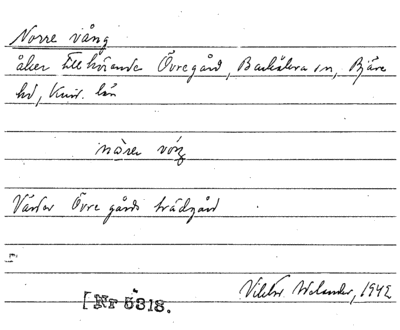 Norre vång
åker tillhörande Övregård, Barkåkra sn, Bjäre
hd, Krist. län
nòrer
Väster Övre gårds trädgård
[Nr 5318.
Viktor Welander, 1942